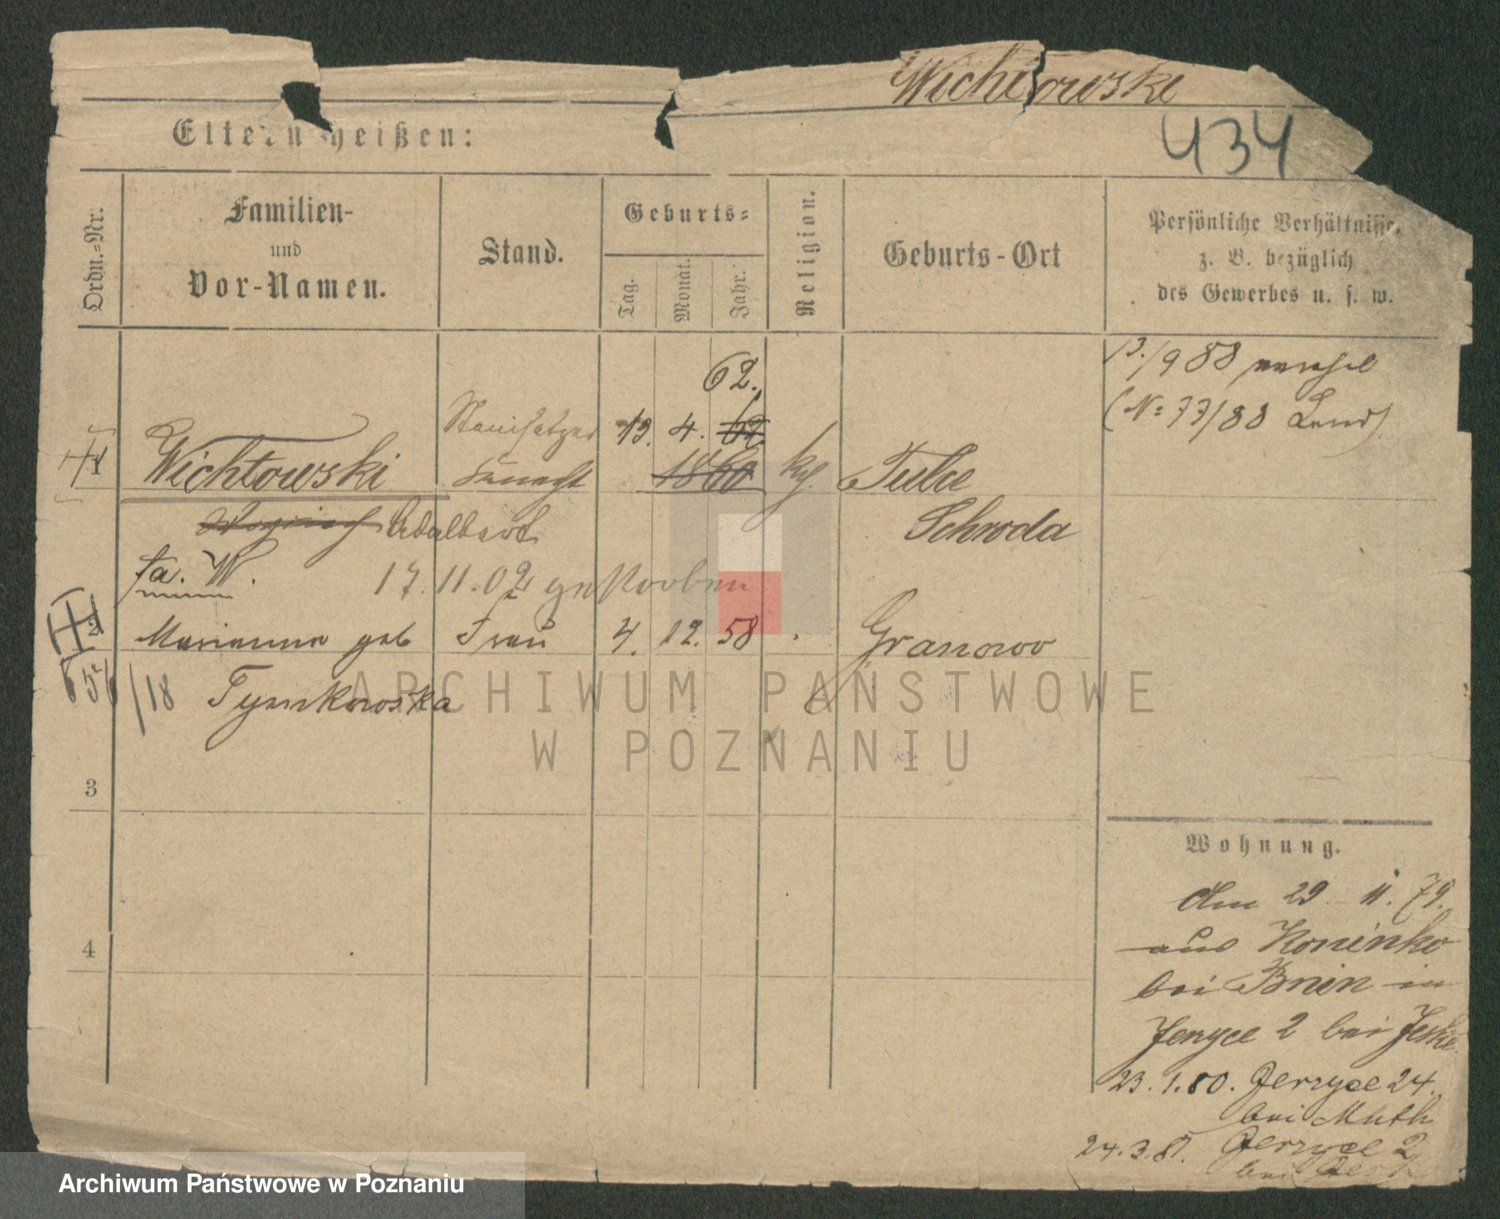 Wichtowski
434
Eltern heißen:
Ordn.-Nr.
Familien-
und
Vor-Namen.
Stand.
Geburts-
Tag.
Monat.
Jahr.
Religion.
Geburts-Ort
Persönliche Verhältnisse,
z. B. bezüglich
des Gewerbes u. s. w.
13./9 88
(N= 77/88
62.
1 Wichtowski Steinsetzer 13. 4. 62
Knecht 1860 kg Tulce
Adalbert Schroda
fa. W. 17.11.02 gestorben
2 Marianna geb Frau 4. 12. 58 Granowo
/18 Tymkowska
ARCHIWUM PAŃSTWOWE
W POZNANIU
3
4
Wohnung.
Am 29 11. 79.
aus Koninko
bei Bnin in
Jerzyce 2 bei Jeske
23.1.80. Jerzyce 24.
bei Muth
24.3.81. Jerzyce 2
bei
Archiwum Państwowe w Poznaniu